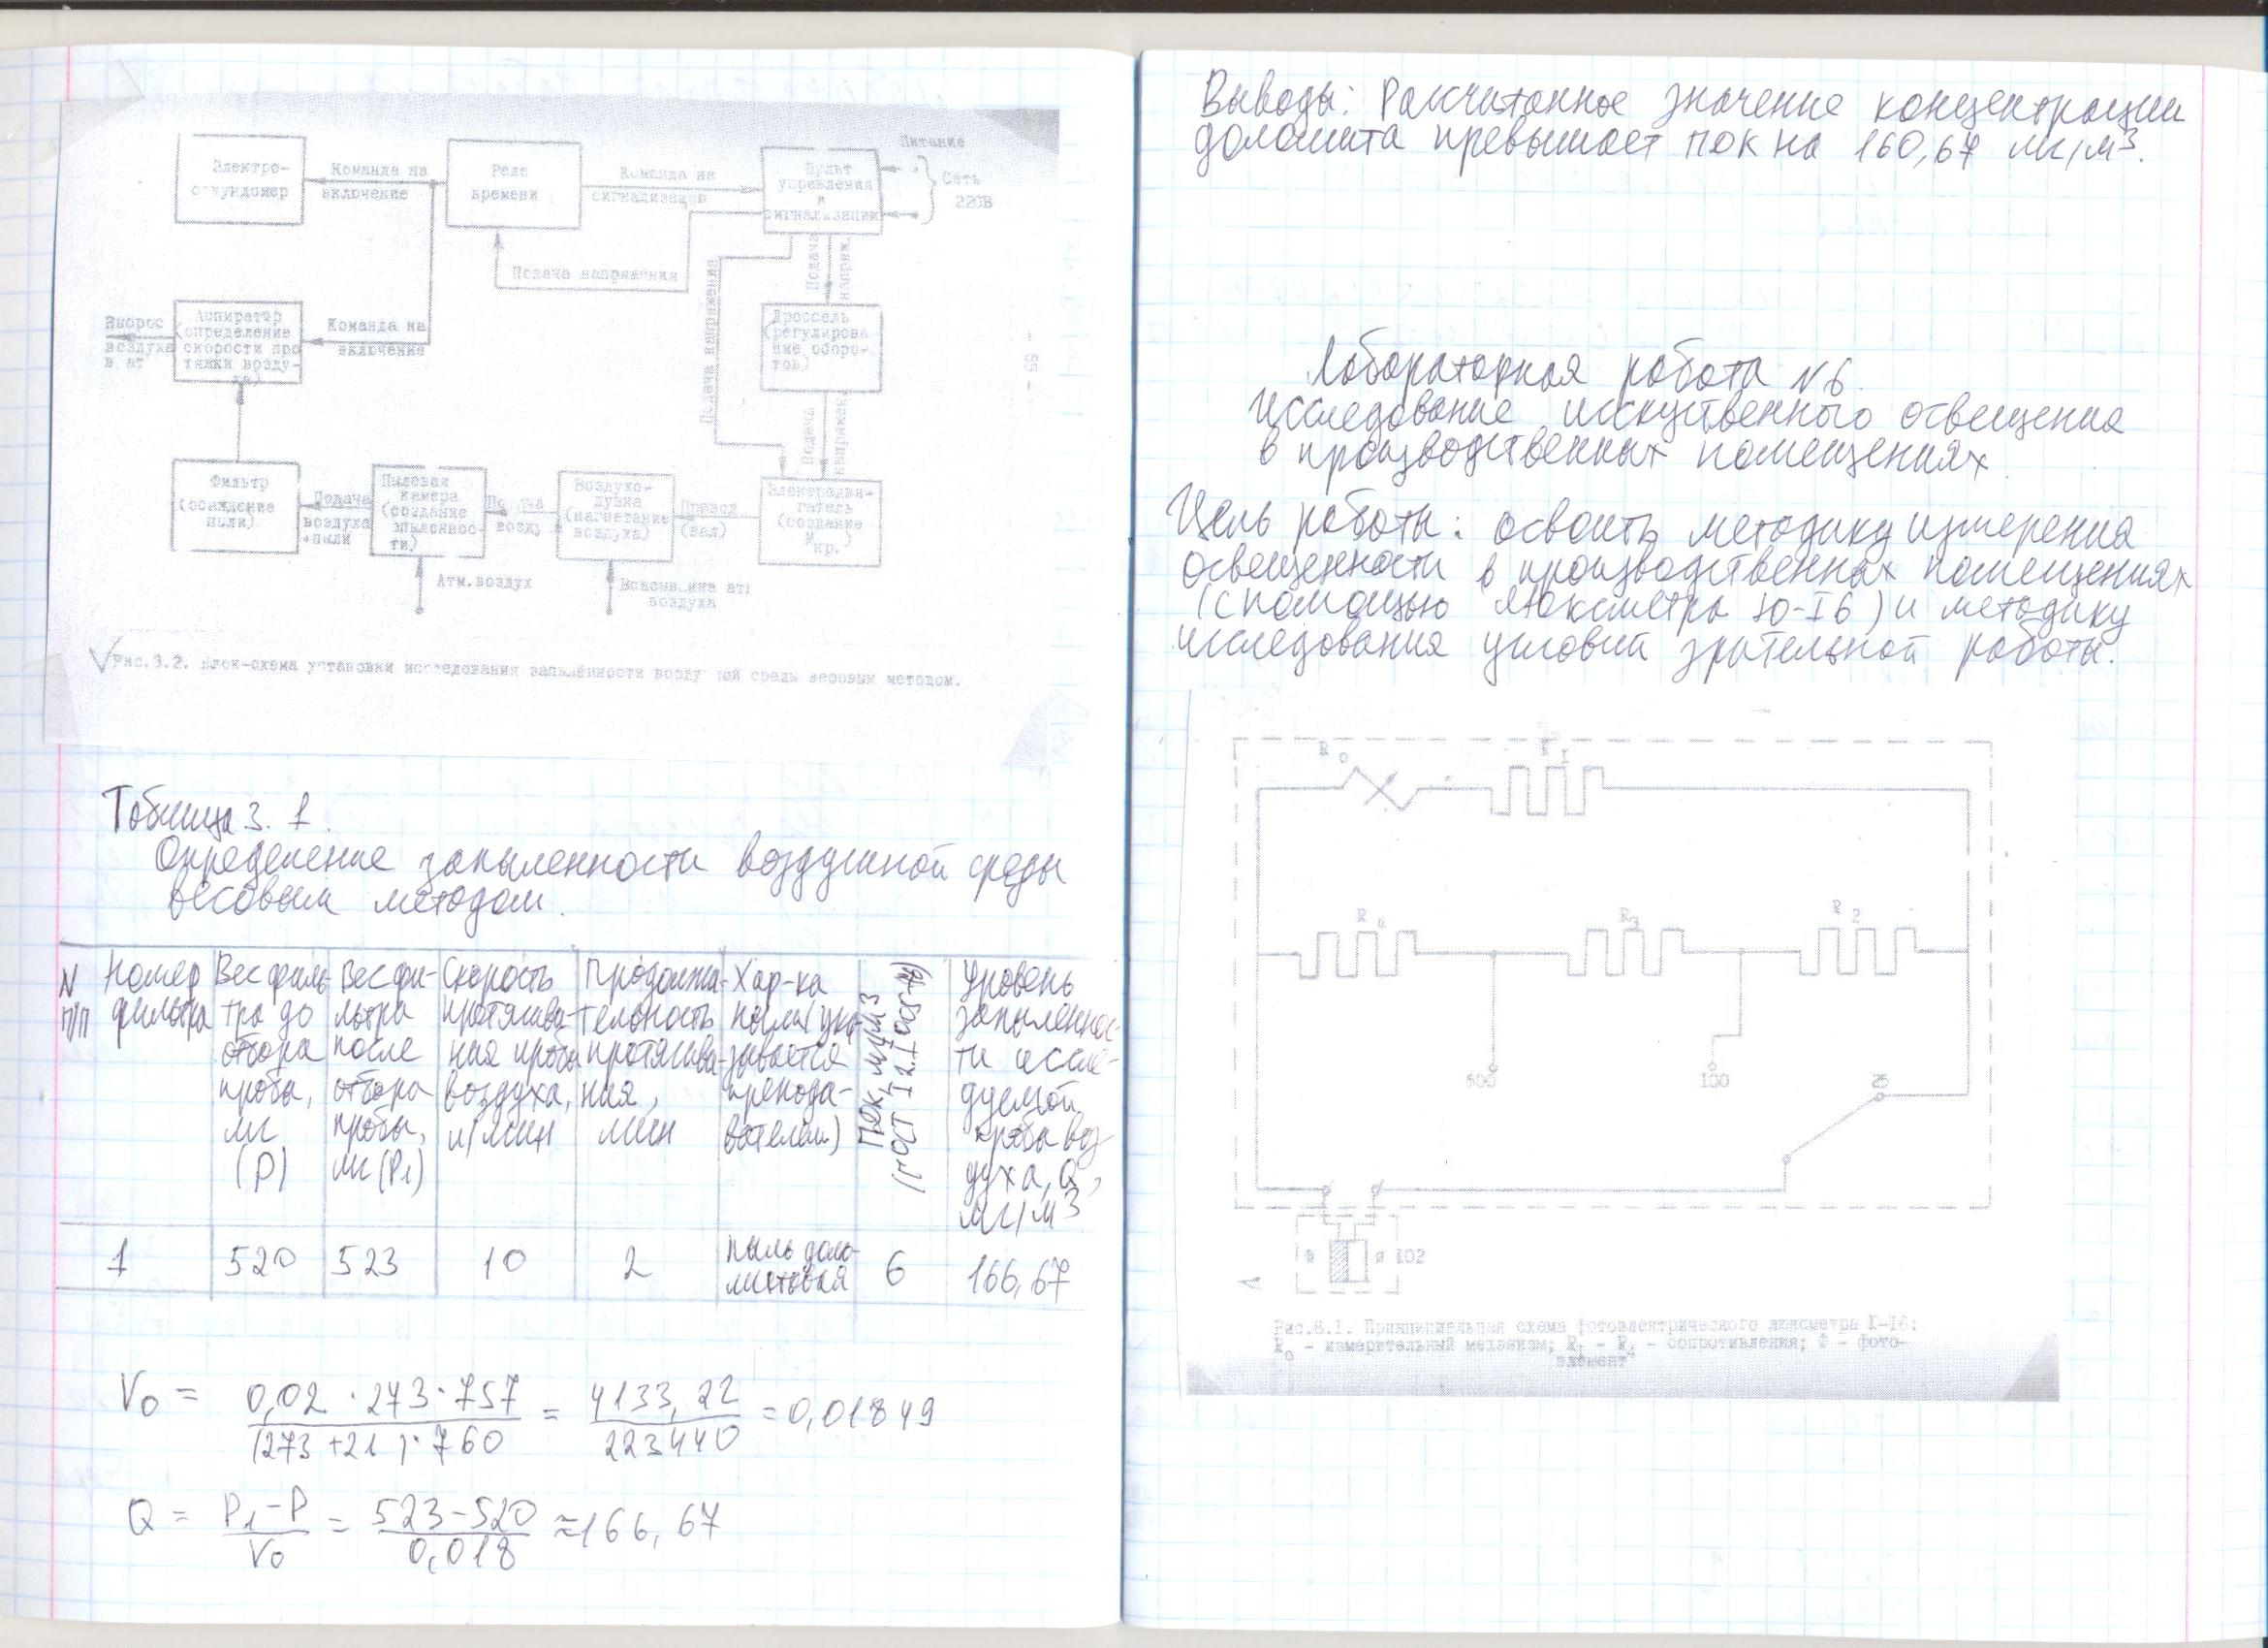 Электро-
секундомер
Команда на
включение
Реле
времени
Команда на
сигнализацию
Пульт
управления
и
сигнализации
Питание
Сеть
220В
Подача напряжения
Подача напряжения
Подача
напряж.
Выброс
воздуха
в ат
Аспиратор
(определение
скорости про
тяжки возду-
ха)
Команда на
включение
Дроссель
(регулирова-
ние оборо-
тов)
Подача
напряжен
- 85 -
Фильтр
(осаждение
пыли)
Подача
воздуха
+пыли
Пылевая
камера
(создание
запыленнос-
ти)
возд.
Воздухо-
дувка
(нагнетание
воздуха)
Привод
(вал)
Электродви-
гатель
(создание
Мкр.)
Атм.воздух
Всасывание ат.
воздуха
Рис.3.2. Блок-схема установки исследования запылённости воздушной среды весовым методом.
Таблица 3. 1.
Определение запыленности воздушной среды
весовым методом.
N п/п
Номер фильтра
Вес филь-тра до отбора пробы, мг (P)
Вес фи-льтра после отбора пробы, мг (P1)
Скорость протягива-ния пробы воздуха, л/мин
Продолжи-тельность протягива-ния, мин
Хар-ка пыли (ука-зывается препода-вателем)
ПДК, мг/м3 (ГОСТ I2.I.005-76)
Уровень запыленнос-ти иссле-дуемой пробы воз-духа, Q, мг/м3
1 520 523 10 2 пыль доло-митовая 6 166,67
V0 = 0,02 · 273 · 757 / (273 + 21) · 760 = 4133,22 / 223440 = 0,01849
Q = P1 - P / V0 = 523 - 520 / 0,018 ≈ 166,67
Выводы: Рассчитанное значение концентрации
доломита превышает ПДК на 160,67 мг/м3.
Лабораторная работа N6.
Исследование исскуственного освещения
в производственных помещениях.
Цель работы: освоить методику измерения
освещенности в производственных помещениях
(с помощью люксметра Ю-I6) и методику
исследования условий зрительной работы.
R0
RI
R4
R3
R2
500
100
25
Ф
Ф I02
Рис.6.I. Принципиальная схема фотоэлектрического люксметра Ю-I6:
R0 - измерительный механизм; RI - R4 - сопротивления; Ф - фото-
элемент